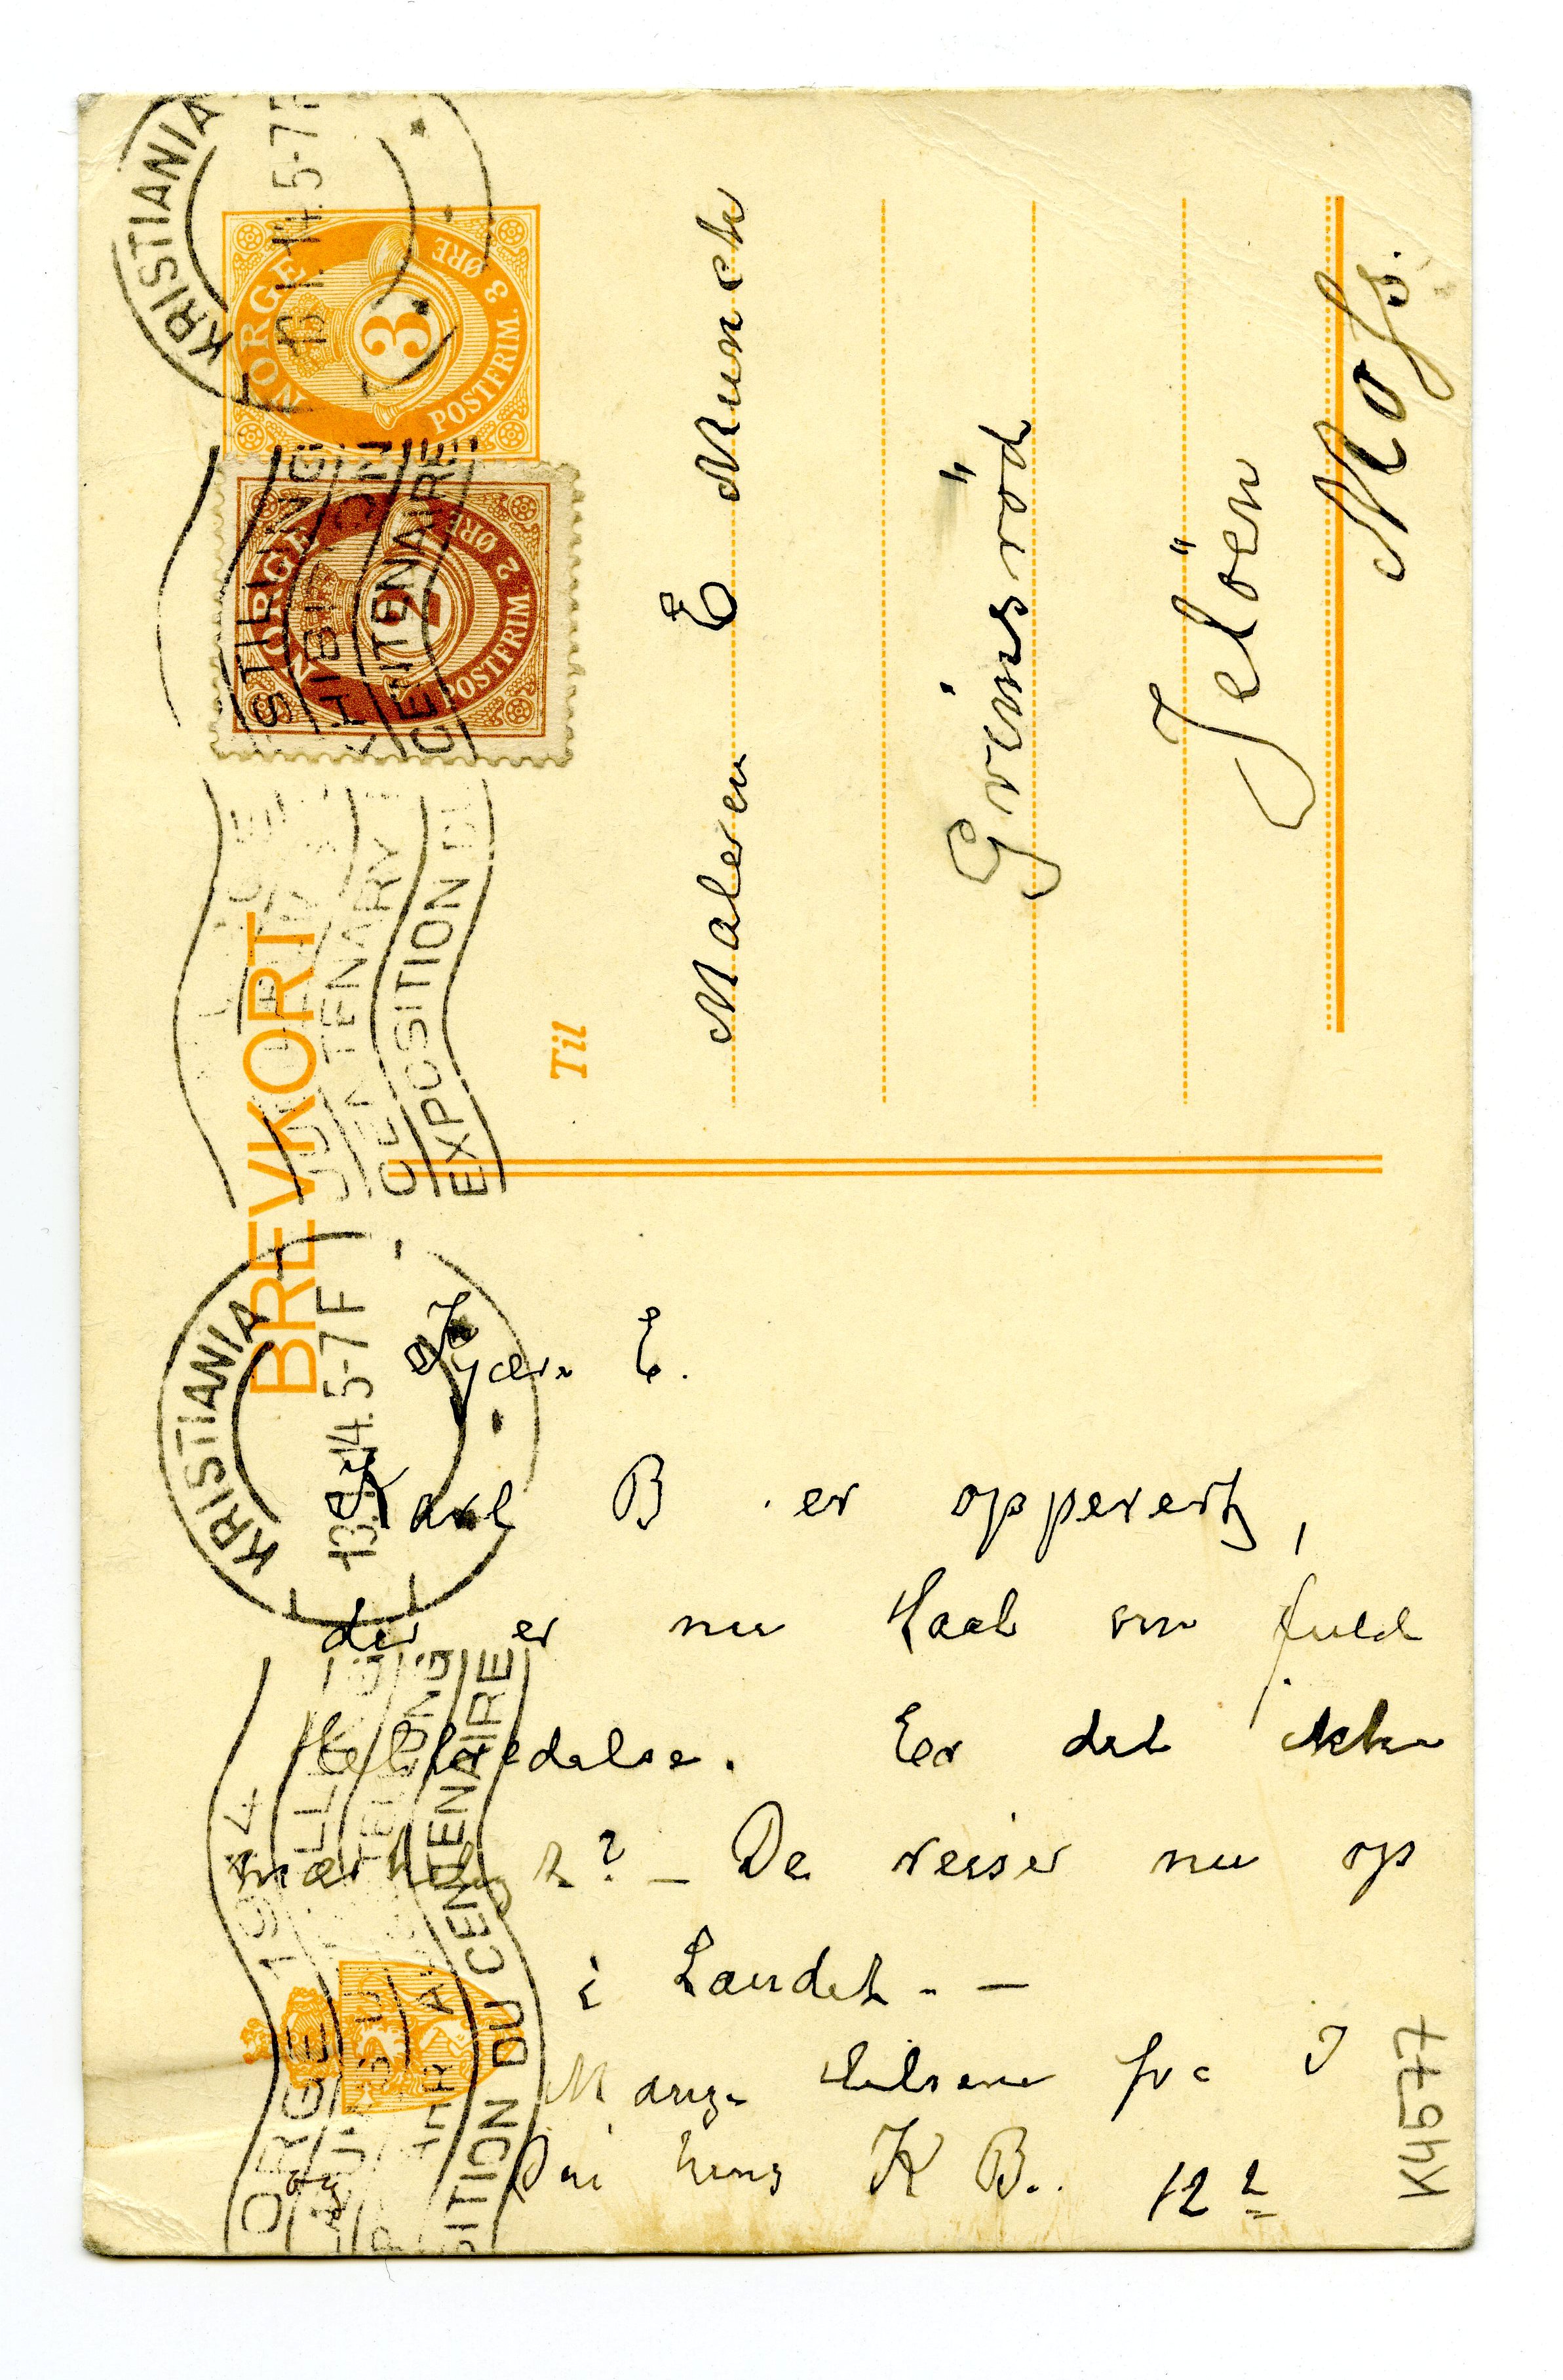 BREVKORT
KRISTIANIA
13. II. 14. 5-7 F
NORGE
POSTFRIM. 3 ØRE
3
NORGE
POSTFRIM 2 ØRE
2
CENTENARY
EXPOSITION DU
CENTENAIRE
KRISTIANIA
13. 14. 5-7 F
NORGE 1914
EXPOSITION DU CENTENAIRE
Til
Maleren E Munch
Grimsröd
Jelöen
Moss.
Kjære E.
Karl B er opperert,
der er nu Haab om fuld
Helbredelse. Er det ikke
mærkeligt? – De reiser nu op
i Landet. –
Mange Hilsener fra I
og Din heng K B.. 12 2
K4577